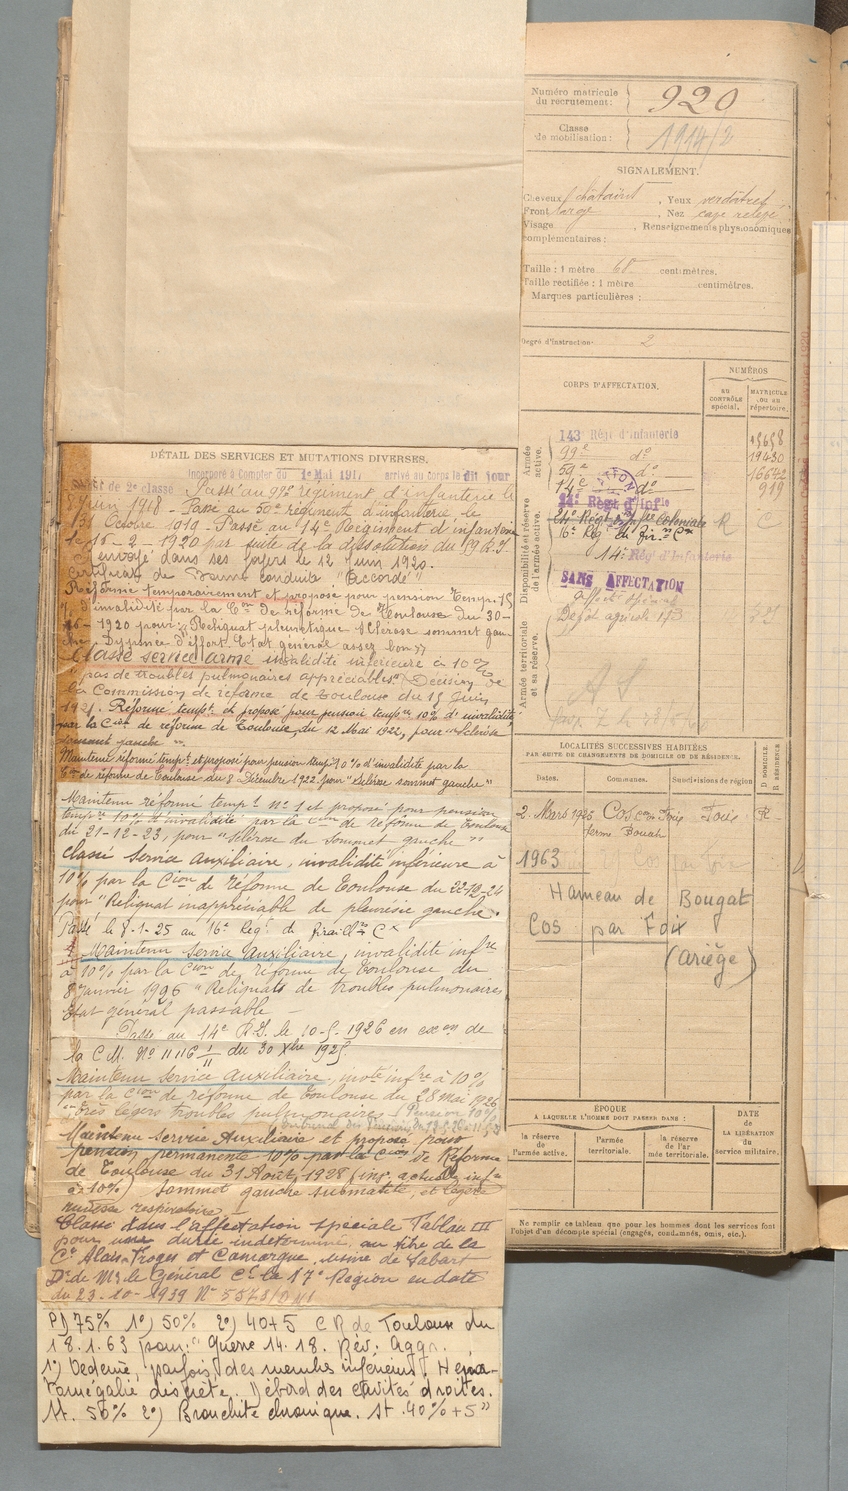 Numéro matricule
du recrutement :
920
Classe
de mobilisation :
1914/2
SIGNALEMENT.
Cheveux châtaint, Yeux verdâtres
Front large, Nez cave relevé
Visage , Renseignements physionomiques
complémentaires :
Taille : 1 mètre 68 centimètres.
Taille rectifiée : 1 mètre centimètres.
Marques particulières :
Degré d'instruction : 2
CORPS D'AFFECTATION.
NUMÉROS
AU CONTRÔLE spécial.
MATRICULE ou au répertoire.
Armée active.
Disponibilité et réserve de l'armée active.
Armée territoriale et sa réserve.
143e Régt d'Infanterie
99e do 19430
59e do 16642
14e do 919
14e Régt d'Infie
24e Régt Infie Coloniale R C
16e Reg
14e Rég d'Infanterie
SANS AFFECTATION
Affect. spéciale
Dépôt agricole 173
LOCALITÉS SUCCESSIVES HABITÉES
PAR SUITE DE CHANGEMENTS DE DOMICILE OU DE RÉSIDENCE.
Dates. Communes. Subdivisions de région D DOMICILE. R RÉSIDENCE
2. Mars 1925 Cos con Foix Foix R
ferme Bouah
1963
Hameau de Bougat
Cos par Foix
(Ariège)
ÉPOQUE
A LAQUELLE L'HOMME DOIT PASSER DANS :
la réserve de l'armée active. l'armée territoriale. la réserve de l'armée territoriale.
DATE de la LIBÉRATION du service militaire.
Ne remplir ce tableau que pour les hommes dont les services font
l'objet d'un décompte spécial (engagés, condamnés, omis, etc.).
DÉTAIL DES SERVICES ET MUTATIONS DIVERSES.
Incorporé à Compter du 1e Mai 1917 arrivé au corps le dit jour
soldat de 2e classe Passé au 99e régiment d'infanterie le
8 juin 1918 - Passé au 59e régiment d'infanterie le
13 Octobre 1919 - Passé au 14e Régiment d'infanterie
le 15-2-1920 par suite de la dissolution du 59 R.I.
envoyé dans ses foyers le 12 Juin 1920.
Certificat de bonne conduite "Accordé"
Réformé temporairement et proposé pour pension temp. 15
% d'invalidité par la Con de réforme de Toulouse du 30-
-1920 pour : "Reliquat pleurétique. Sclérose sommet gau-
che. Dyspnée d'effort. Etat général assez bon"
Classé service armé invalidité inférieure à 10%
pas de troubles pulmonaires appréciables. Décision de
la Commission de réforme de Toulouse du 15 Juin
1921. Réformé tempt et proposé pour pension tempre 10% d'invalidité
par la Cion de réforme de Toulouse du 12 Mai 1922, pour "sclérose
sommet gauche".
Maintenu réformé tempt et proposé pour pension tempre 10% d'invalidité par la
Con de réforme de Toulouse du 8 Décembre 1922 pour "Sclérose sommet gauche"
Maintenu réformé tempt n° 1 et proposé pour pension
tempre 10% d'invalidité par la Cion de réforme de Toulouse
du 21-12-23, pour "sclérose du sommet gauche"
Classé service auxiliaire, invalidité inférieure à
10% par la Cion de réforme de Toulouse du 22-12-24
pour "Reliquat inappréciable de pleurésie gauche".
Passé le 8-1-25 au 16e Regt de
Maintenu Service Auxiliaire, invalidité infre
à 10% par la Cion de réforme de Toulouse du
8 Janvier 1926 "Reliquats de troubles pulmonaires
état général passable -
Passé au 14e R.I. le 10-5-1926 en exon de
la C.M. No 11116 1/11 du 30 Xbre 1925.
Maintenu Service Auxiliaire, invté infre à 10%
par la Cion de réforme de Toulouse du 28 mai 1926
"très légers troubles pulmonaires" Pension 10%
Maintenu service Auxiliaire et proposé pour
pension permanente 10% par la Cion de Réforme
de Toulouse du 31 Août 1928 (inf. actuelle infre
à 10%) sommet gauche submatité, et légère
rudesse respiratoire.
Classé dans l'affectation spéciale Tableau III
pour une durée indéterminée, au titre de la
Cie Alais Froges et Camargue, usine de Sabart
Don de Mr le Général Ct la 17e Région en date
du 23-10-1939 No 5573/0
P) 75% 1°) 50% 2°) 40+5 CR de Toulouse du
18.1.63 pour : "Guerre 14.18. Rév. Aggr.
1°) Oedème, parfois, des membres inférieurs. Hépa-
tomégalie discrète. Débord des cavités droites.
St. 50% 2°) Bronchite chronique. St. 40% + 5"